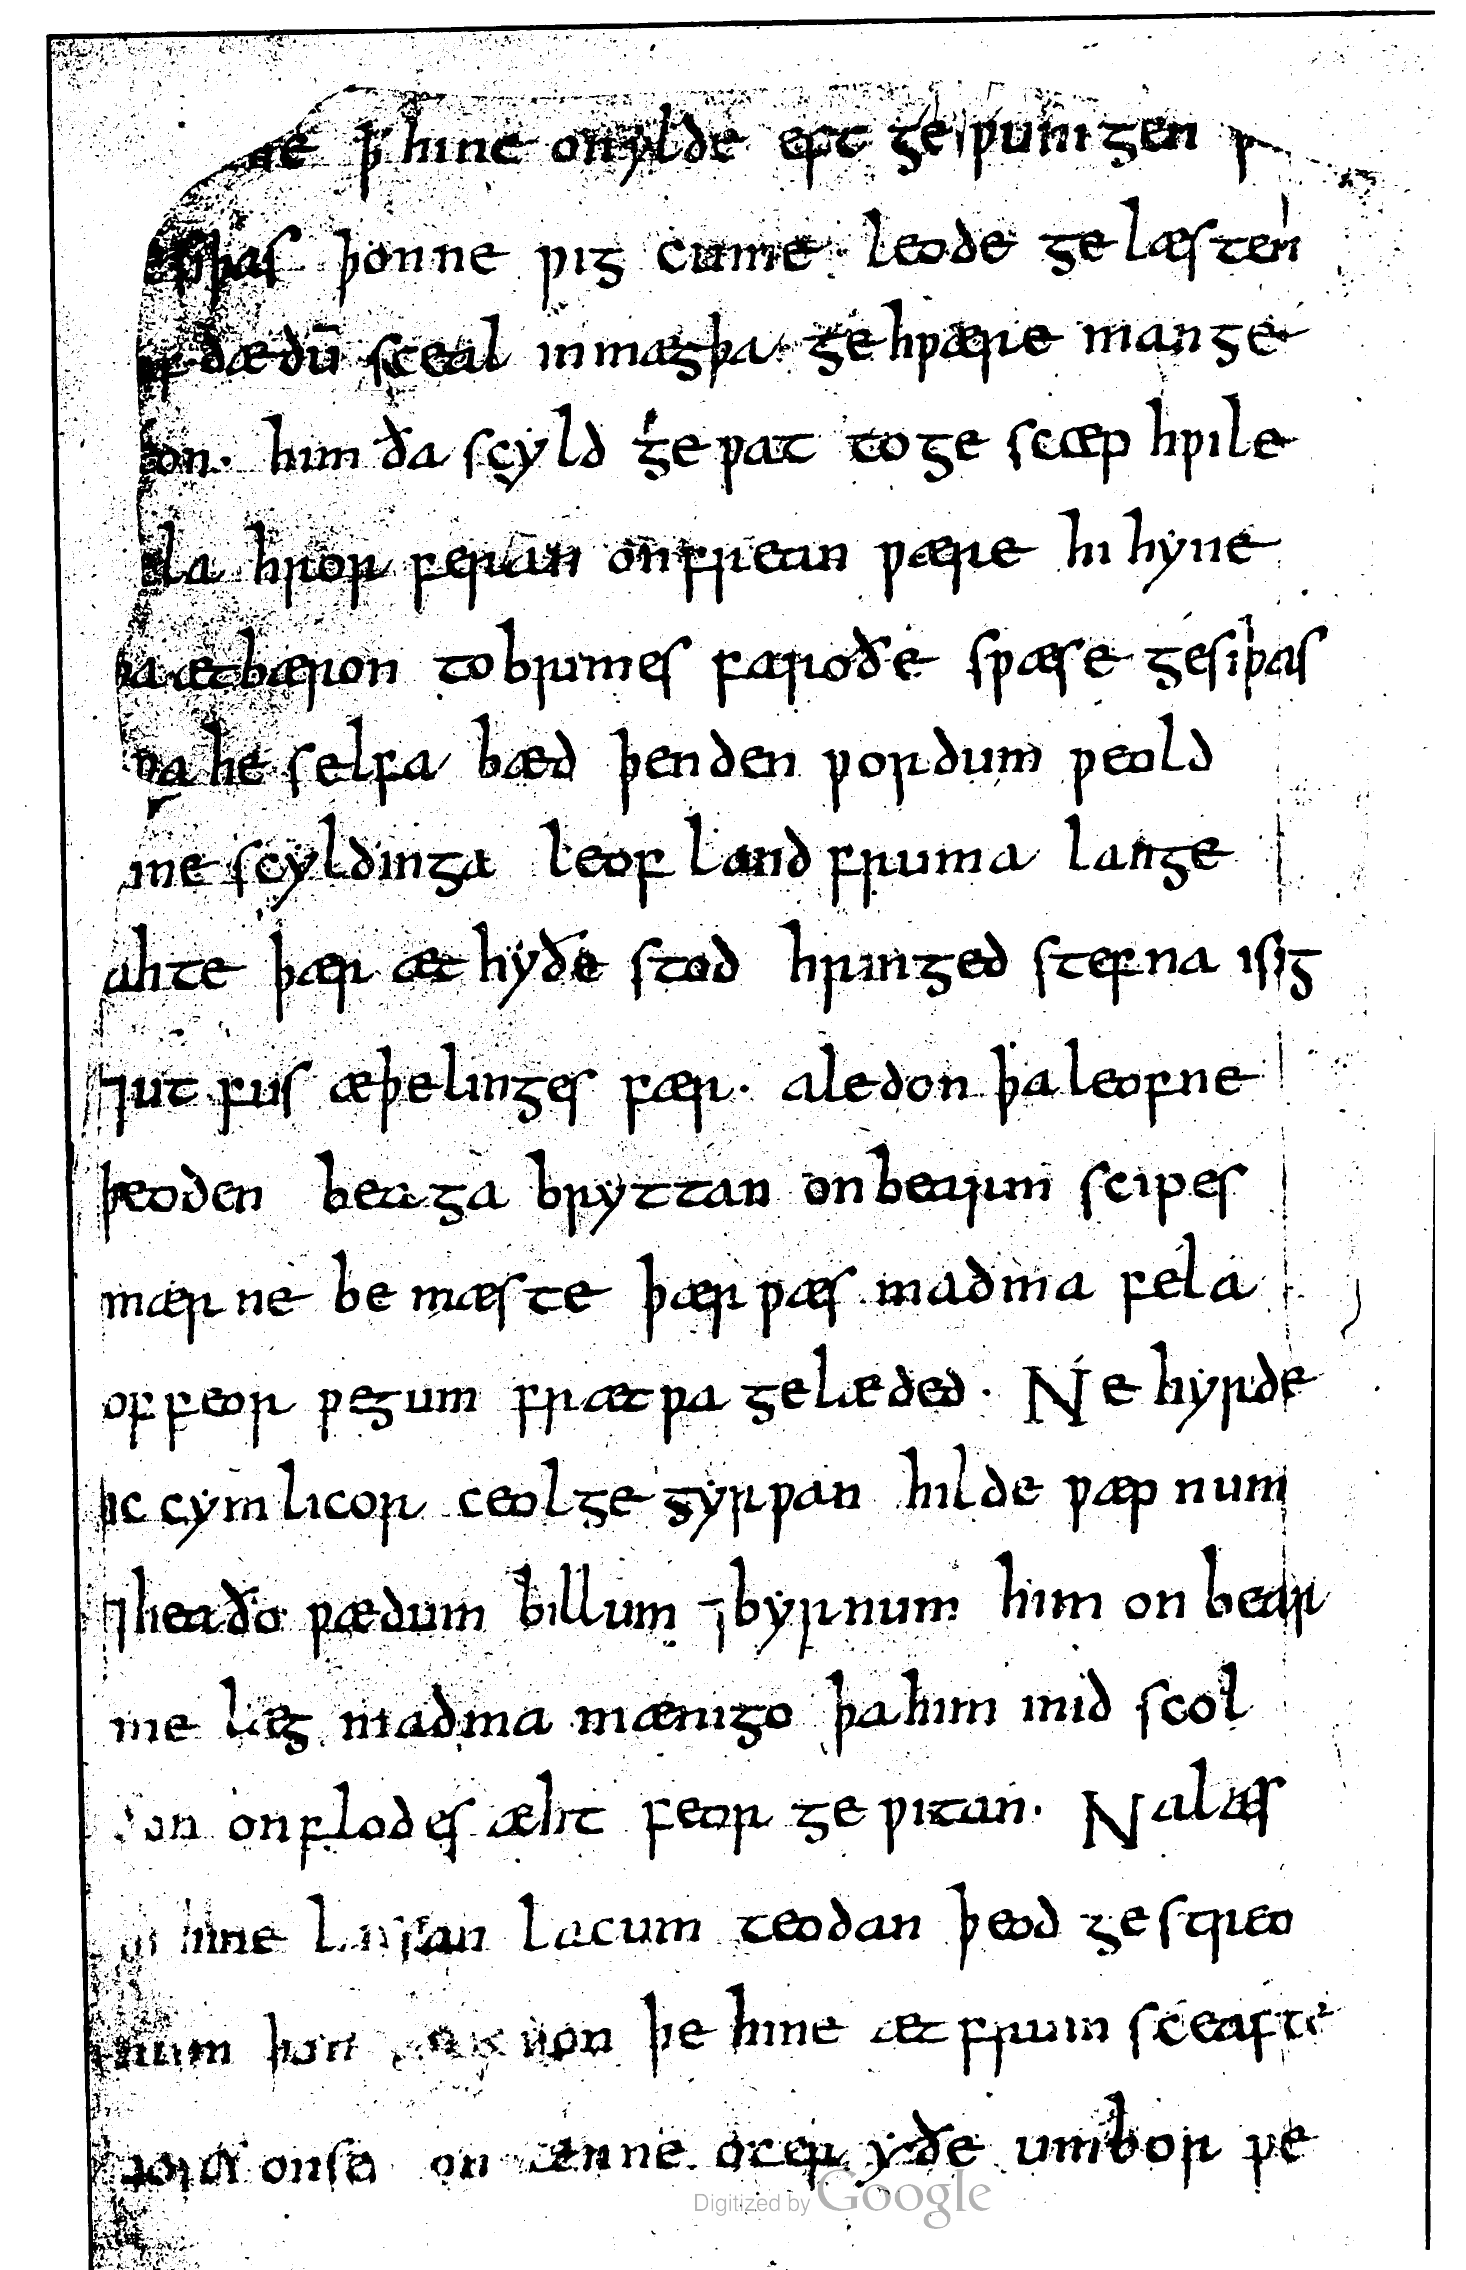 ne ꝥ hine onylde eft ge ƿunigen ƿ
sıþas þonne ƿig cume. leode ge læsten
dædū sceal in mægþa gehƿære man ge
on. him ða scyld ge ƿat to ge scæp hƿile
la hror feran on frean ƿære hi hyne
þa ætbæron to brimes faroðe sƿæse gesiþas
ƿa he selfa bæd þenden ƿordum ƿeold
ine scyldinga leof land fruma lange
ahte þær æt hyðe stod hringed stefna isig
⁊ut fus æþelinges fær. aledon þa leofne
þeoden beaga bryttan on bearm scipes
mærne be mæste þær ƿæs madma fela
of feor ƿegum frætƿa gelæded. Ne hyrde
ic cymlicor ceol ge gyrƿan hilde ƿæpnum
⁊heaðo ƿædum billum ⁊byrnum him on bear
me læg madma mænigo þa him mid scol
don on flodes æht feor ge ƿitan. Nalæs
hi hine læssan lacum teodan þeod ge streo
num þon dydon þe hine æt frum sceafte
forð onse on ænne ofer yðe umbor ƿe
Digitized by Google